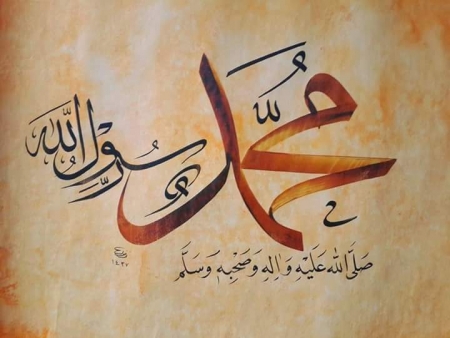 محمد
رسول الله
صَلَّى اللهُ عَلَيْهِ وَاٰلِهِ وَصَحْبِهِ وَسَلَّمَ
١٤٣٠